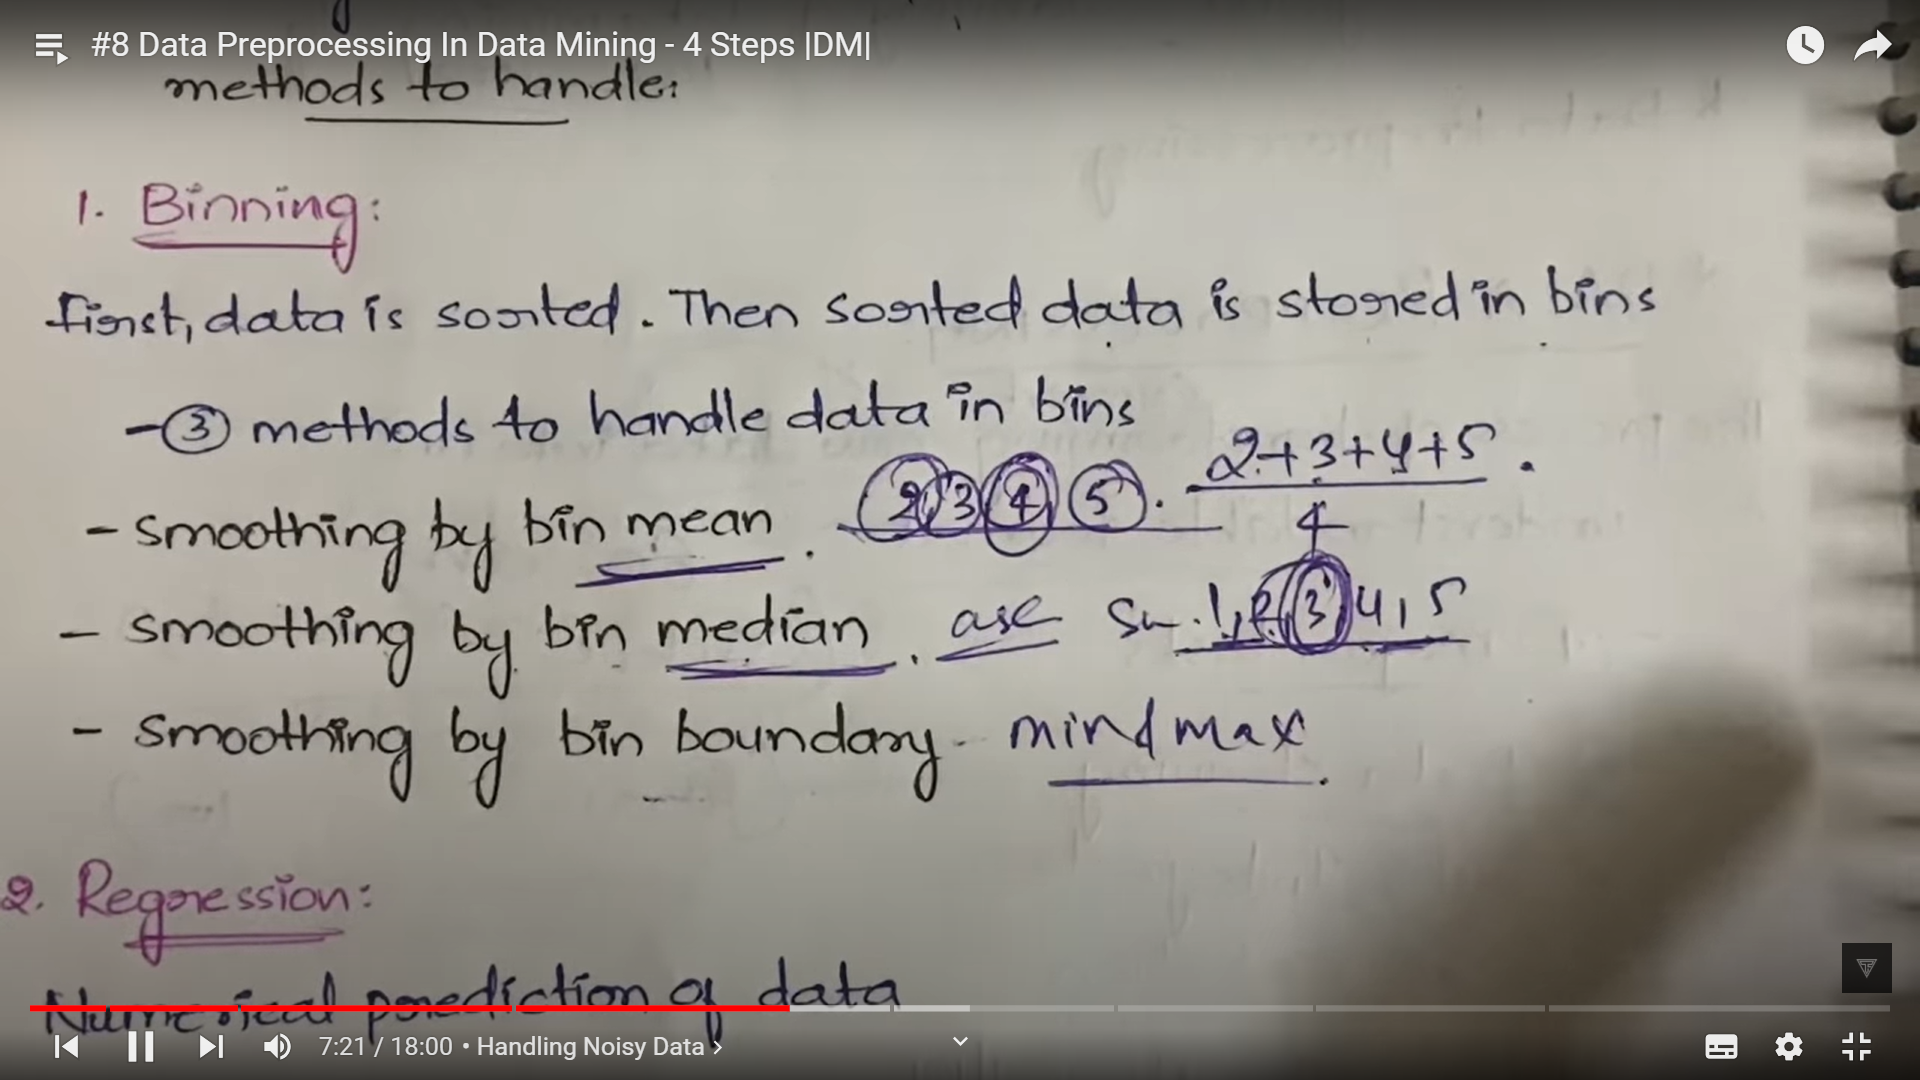 #8 Data Preprocessing In Data Mining - 4 Steps |DM|
methods to handle:
1. Binning:
first, data is sorted. Then sorted data is stored in bins
- 3 methods to handle data in bins
- smoothing by bin mean. 2 3 4 5. 2+3+4+5 / 4
- smoothing by bin median. 1, 2, 3, 4, 5
- smoothing by bin boundary - min max
2. Regression:
Numerical prediction of data
7:21 / 18:00 • Handling Noisy Data >